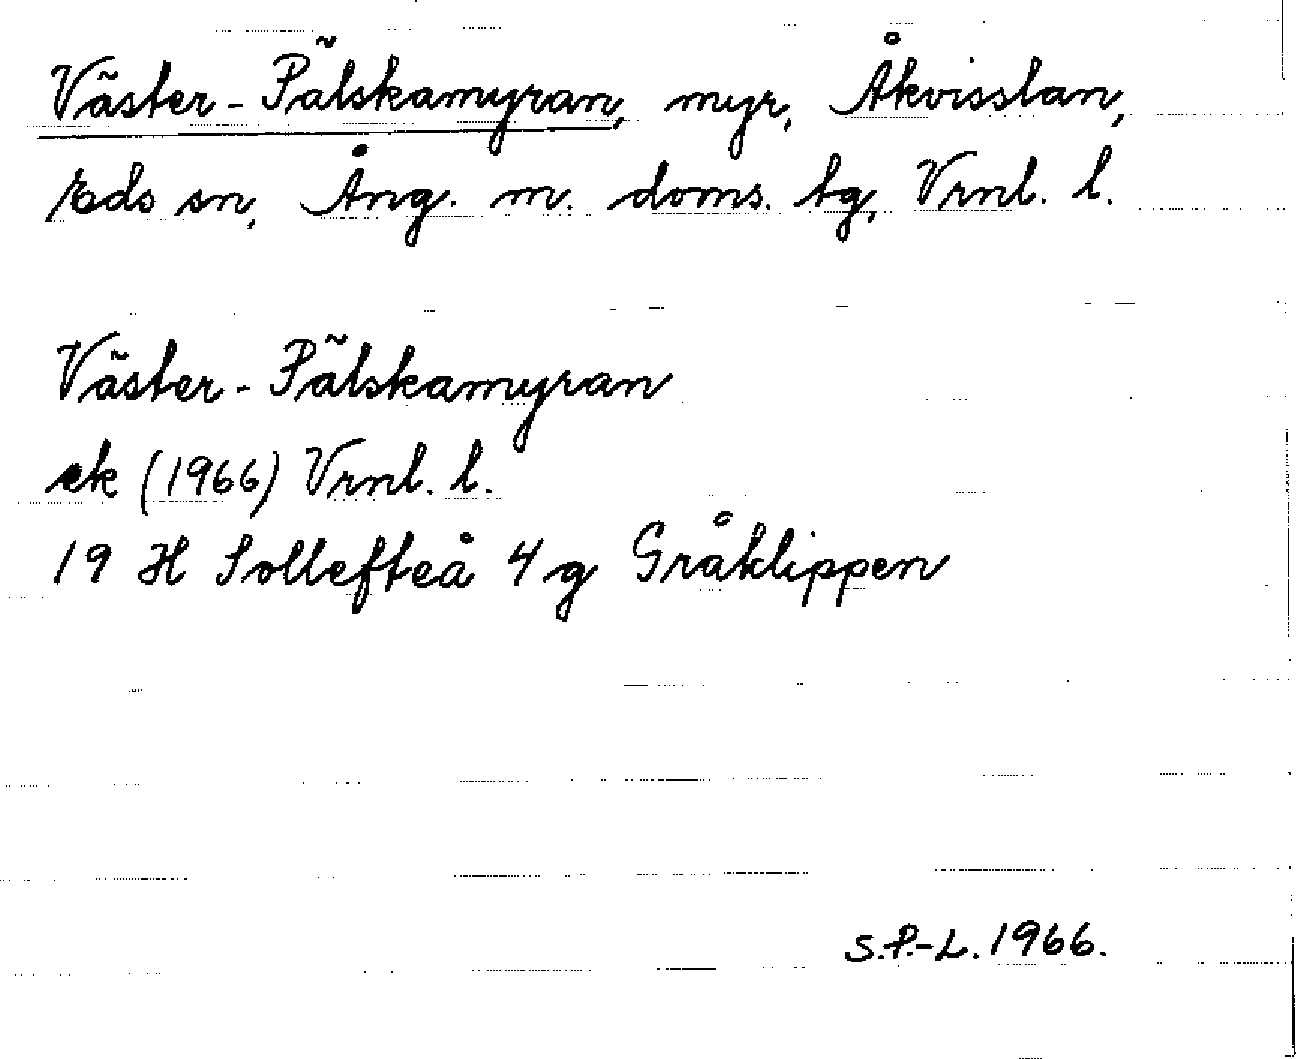 Väster-Pälskamyran, myr, Åkvisslan,
Eds sn, Ång. m. doms. tg, Vrnl. l.
Väster-Pälskamyran
ek (1966) Vrnl. l.
19 H Sollefteå 4 g Gråklippen
S.P.-L. 1966.